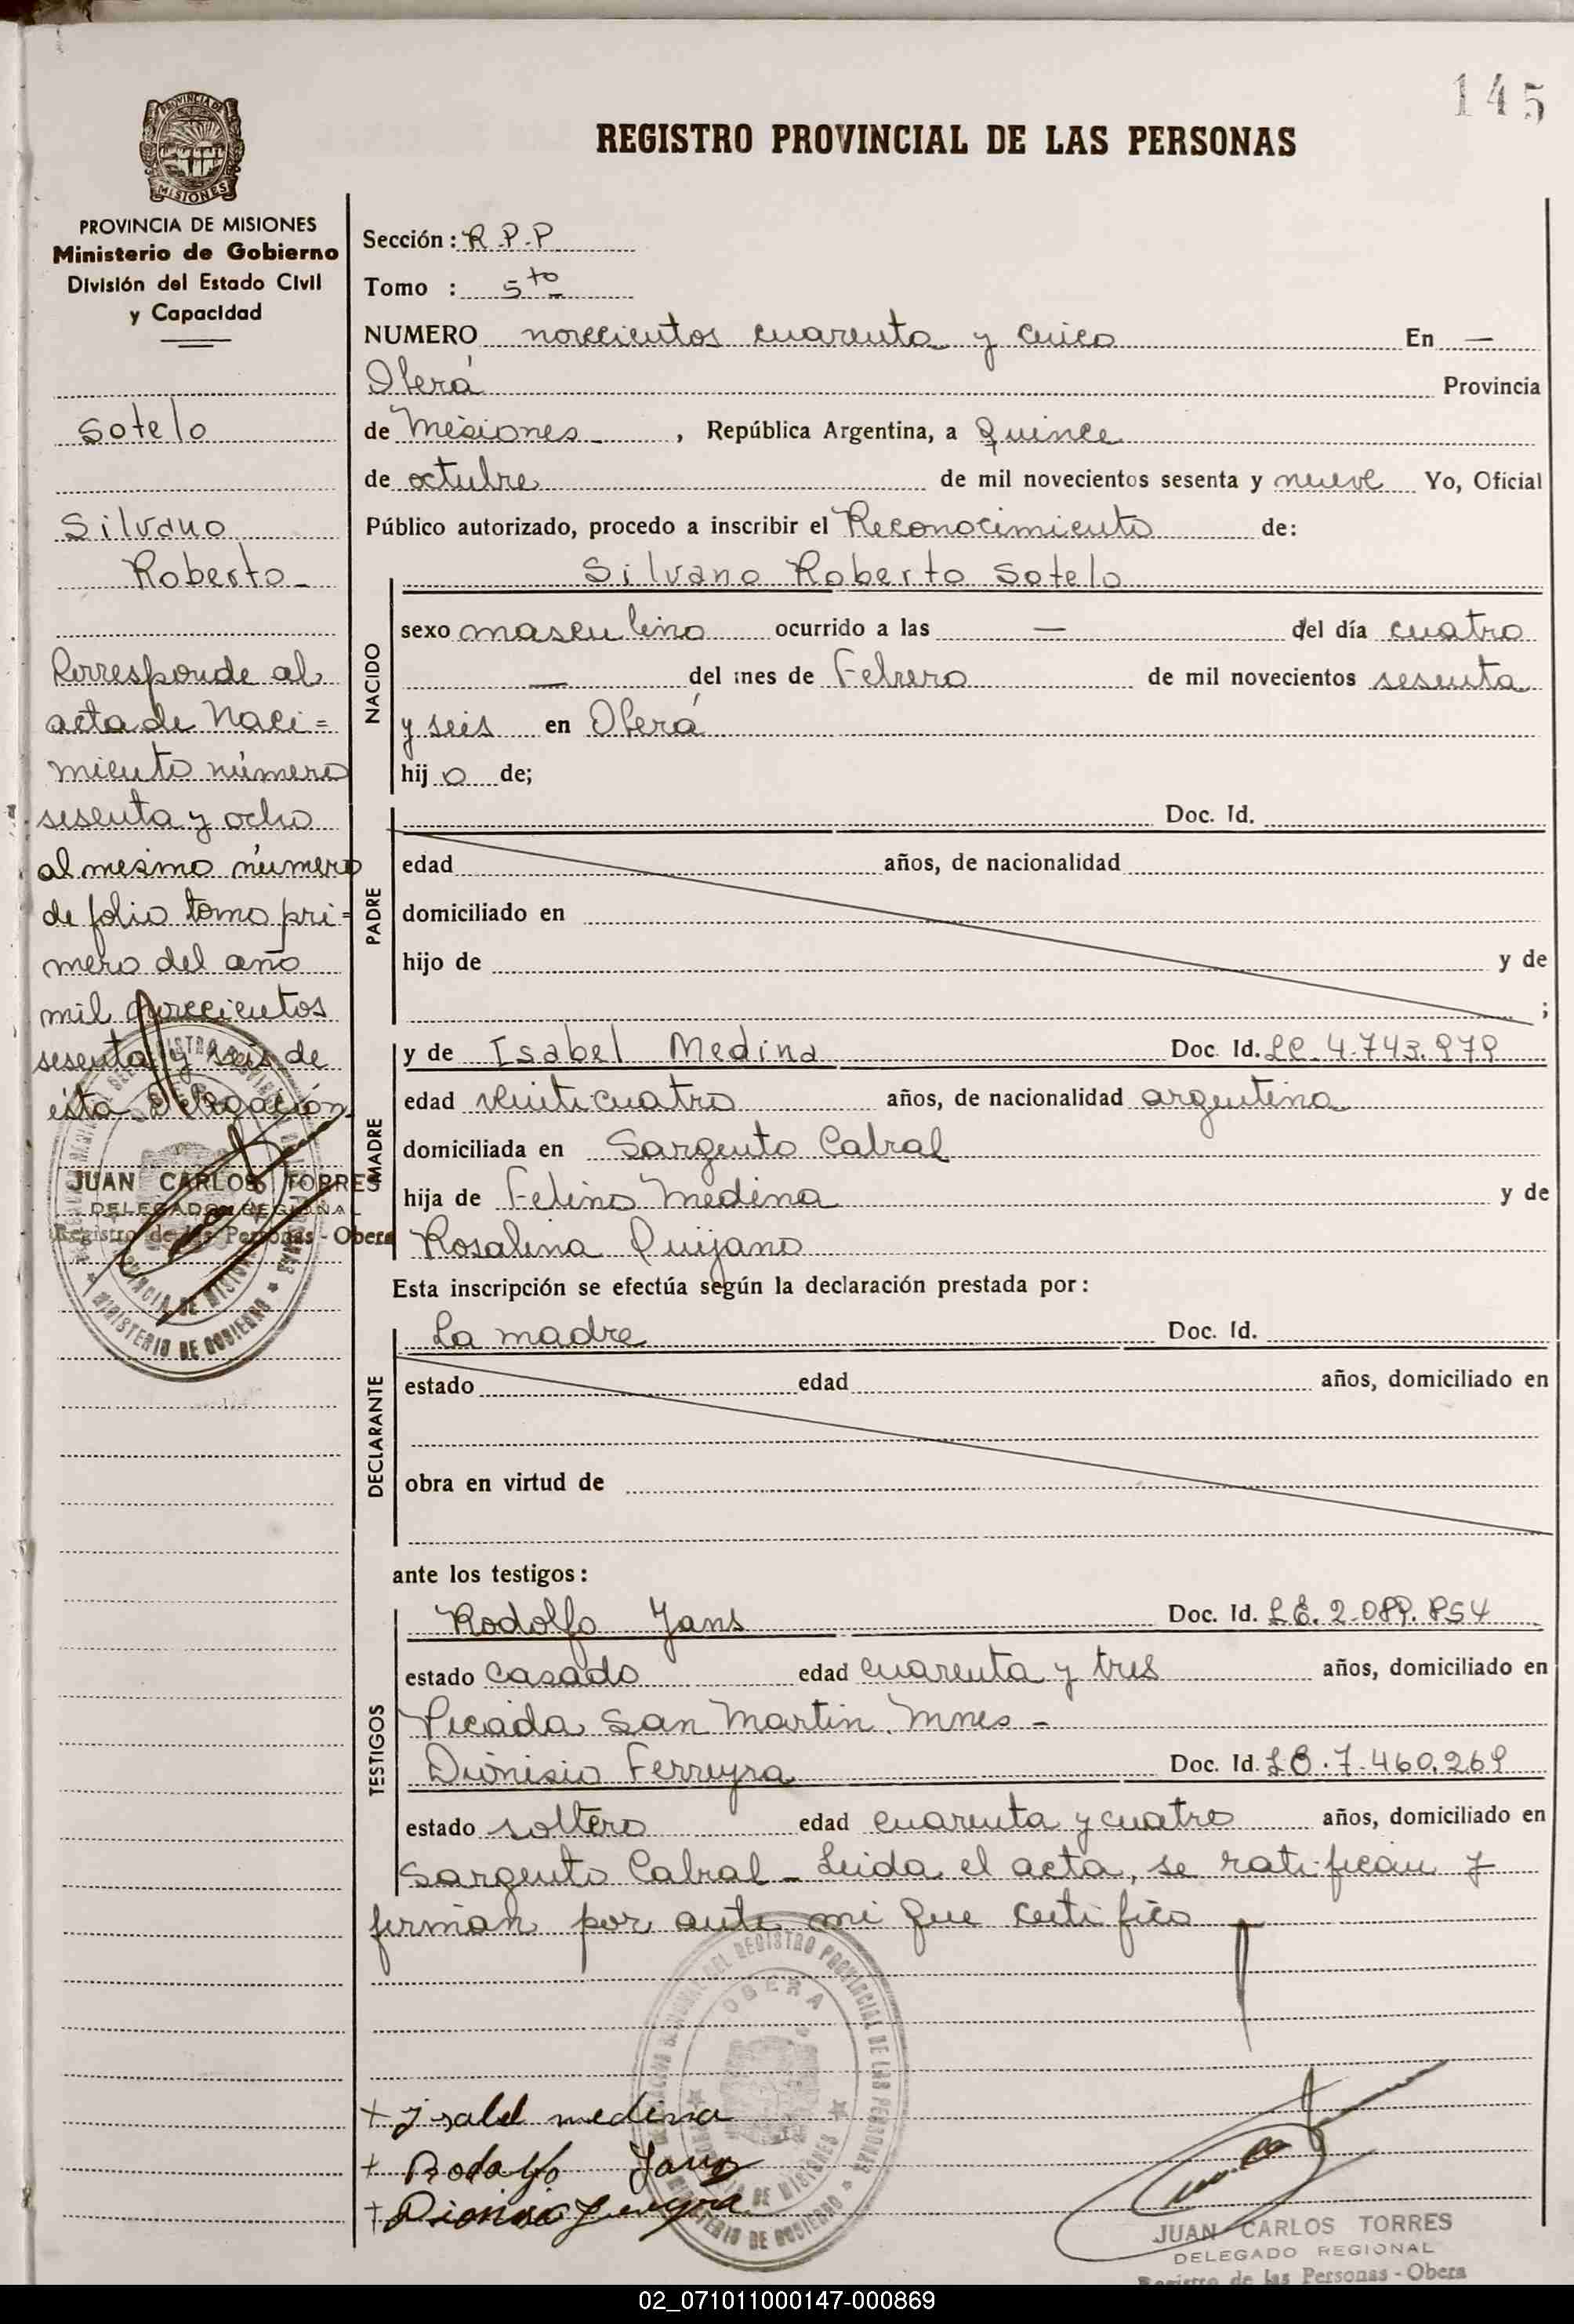 145
REGISTRO PROVINCIAL DE LAS PERSONAS
PROVINCIA DE MISIONES
PROVINCIA DE MISIONES
Ministerio de Gobierno
División del Estado Civil
y Capacidad
Sotelo
Silvano
Roberto -
Corresponde al
acta de Naci =
miento número
sesenta y ocho
al mismo número
de folio tomo pri =
mero del año
mil novecientos
sesenta y seis de
ésta Delegación
JUAN CARLOS TORRES
DELEGADO REGIONAL
Registro de las Personas - Obera
Sección : R.P.P
Tomo : 5to
NUMERO novecientos cuarenta y cinco En —
Oberá Provincia
de Misiones , República Argentina, a Quince
de octubre de mil novecientos sesenta y nueve Yo, Oficial
Público autorizado, procedo a inscribir el Reconocimiento de:
Silvano Roberto Sotelo
NACIDO
sexo masculino ocurrido a las — del día cuatro
— del mes de Febrero de mil novecientos sesenta
y seis en Oberá
hij o de;
PADRE
Doc. Id.
edad años, de nacionalidad
domiciliado en
hijo de y de
;
MADRE
y de Isabel Medina Doc. Id. LC. 4.743.979
edad veinticuatro años, de nacionalidad argentina
domiciliada en Sargento Cabral
hija de Felino Medina y de
Rosalina Quijano
Esta inscripción se efectúa según la declaración prestada por :
DECLARANTE
La madre Doc. Id.
estado edad años, domiciliado en
obra en virtud de
ante los testigos :
TESTIGOS
Rodolfo Jans Doc. Id. L.E. 2.089.854
estado casado edad cuarenta y tres años, domiciliado en
Picada San Martin. Mnes -
Dionisio Ferreyra Doc. Id. LE. 7.460.269
estado soltero edad cuarenta y cuatro años, domiciliado en
Sargento Cabral - Leida el acta, se ratifican y
firman por ante mi que certifico
OBERA
+ Isabel medina
+ Rodolfo Jans
+ Dionisio Ferreyra
JUAN CARLOS TORRES
DELEGADO REGIONAL
Registro de las Personas - Obera
02_071011000147-000869